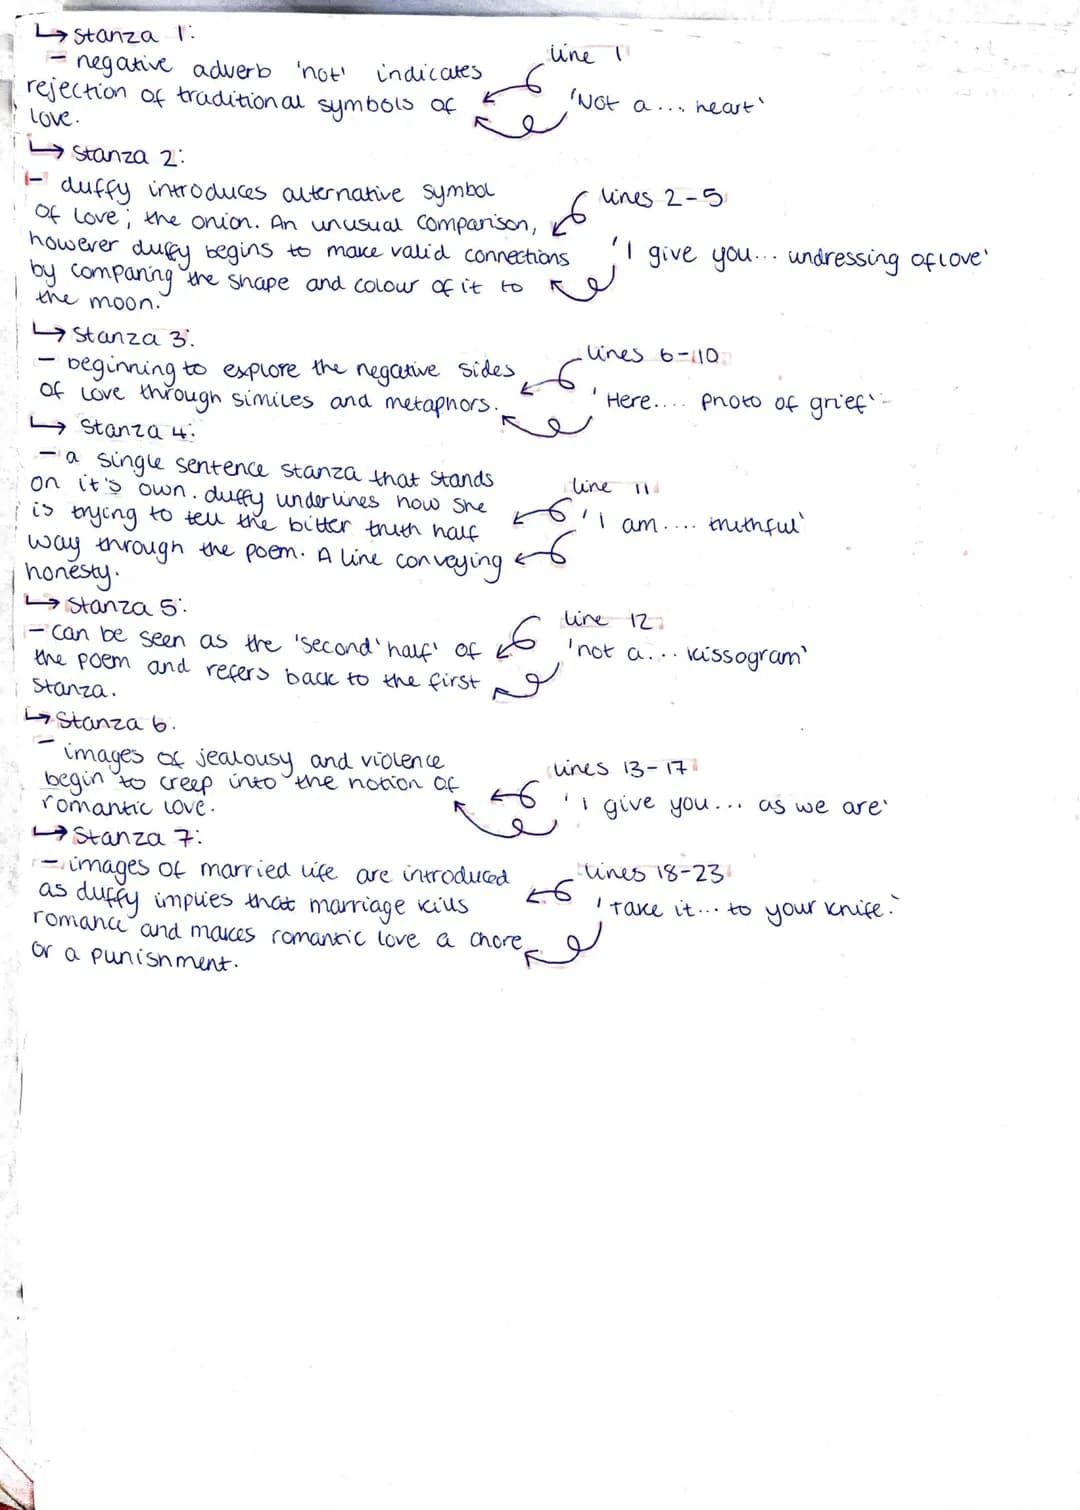 ↳ Stanza 1:
- negative adverb 'not' indicates
rejection of traditional symbols of
love.
line 1
'Not a... heart'
↳ Stanza 2:
- duffy introduces alternative symbol
of love; the onion. An unusual comparison,
however duffy begins to make valid connections
by comparing the shape and colour of it to
the moon.
lines 2-5
'I give you... undressing of love'
↳ Stanza 3:
- beginning to explore the negative sides
of love through similes and metaphors.
lines 6-10
'Here.... photo of grief'-
↳ Stanza 4:
- a single sentence stanza that stands
on it's own. duffy underlines how she
is trying to tell the bitter truth half
way through the poem. A line conveying
honesty.
line 11
'I am.... truthful'
↳ Stanza 5:
- can be seen as the 'second' half' of
the poem and refers back to the first
stanza.
line 12
'not a... kissogram'
↳ Stanza 6.
- images of jealousy and violence
begin to creep into the notion of
romantic love.
lines 13-17
'I give you... as we are'
↳ Stanza 7:
- images of married life are introduced
as duffy implies that marriage kills
romance and makes romantic love a chore
or a punishment.
lines 18-23
'Take it... to your knife.'